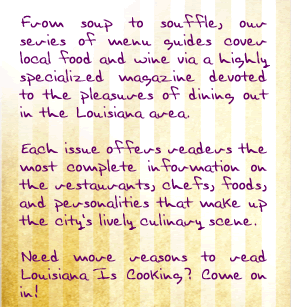 From soup to souffle, our
series of menu guides cover
local food and wine via a highly
specialized magazine devoted
to the pleasures of dining out
in the Louisiana area.
Each issue offers readers the
most complete information on
the restaurants, chefs, foods,
and personalities that make up
the city's lively culinary scene.
Need more reasons to read
Louisiana Is Cooking? Come on
in!